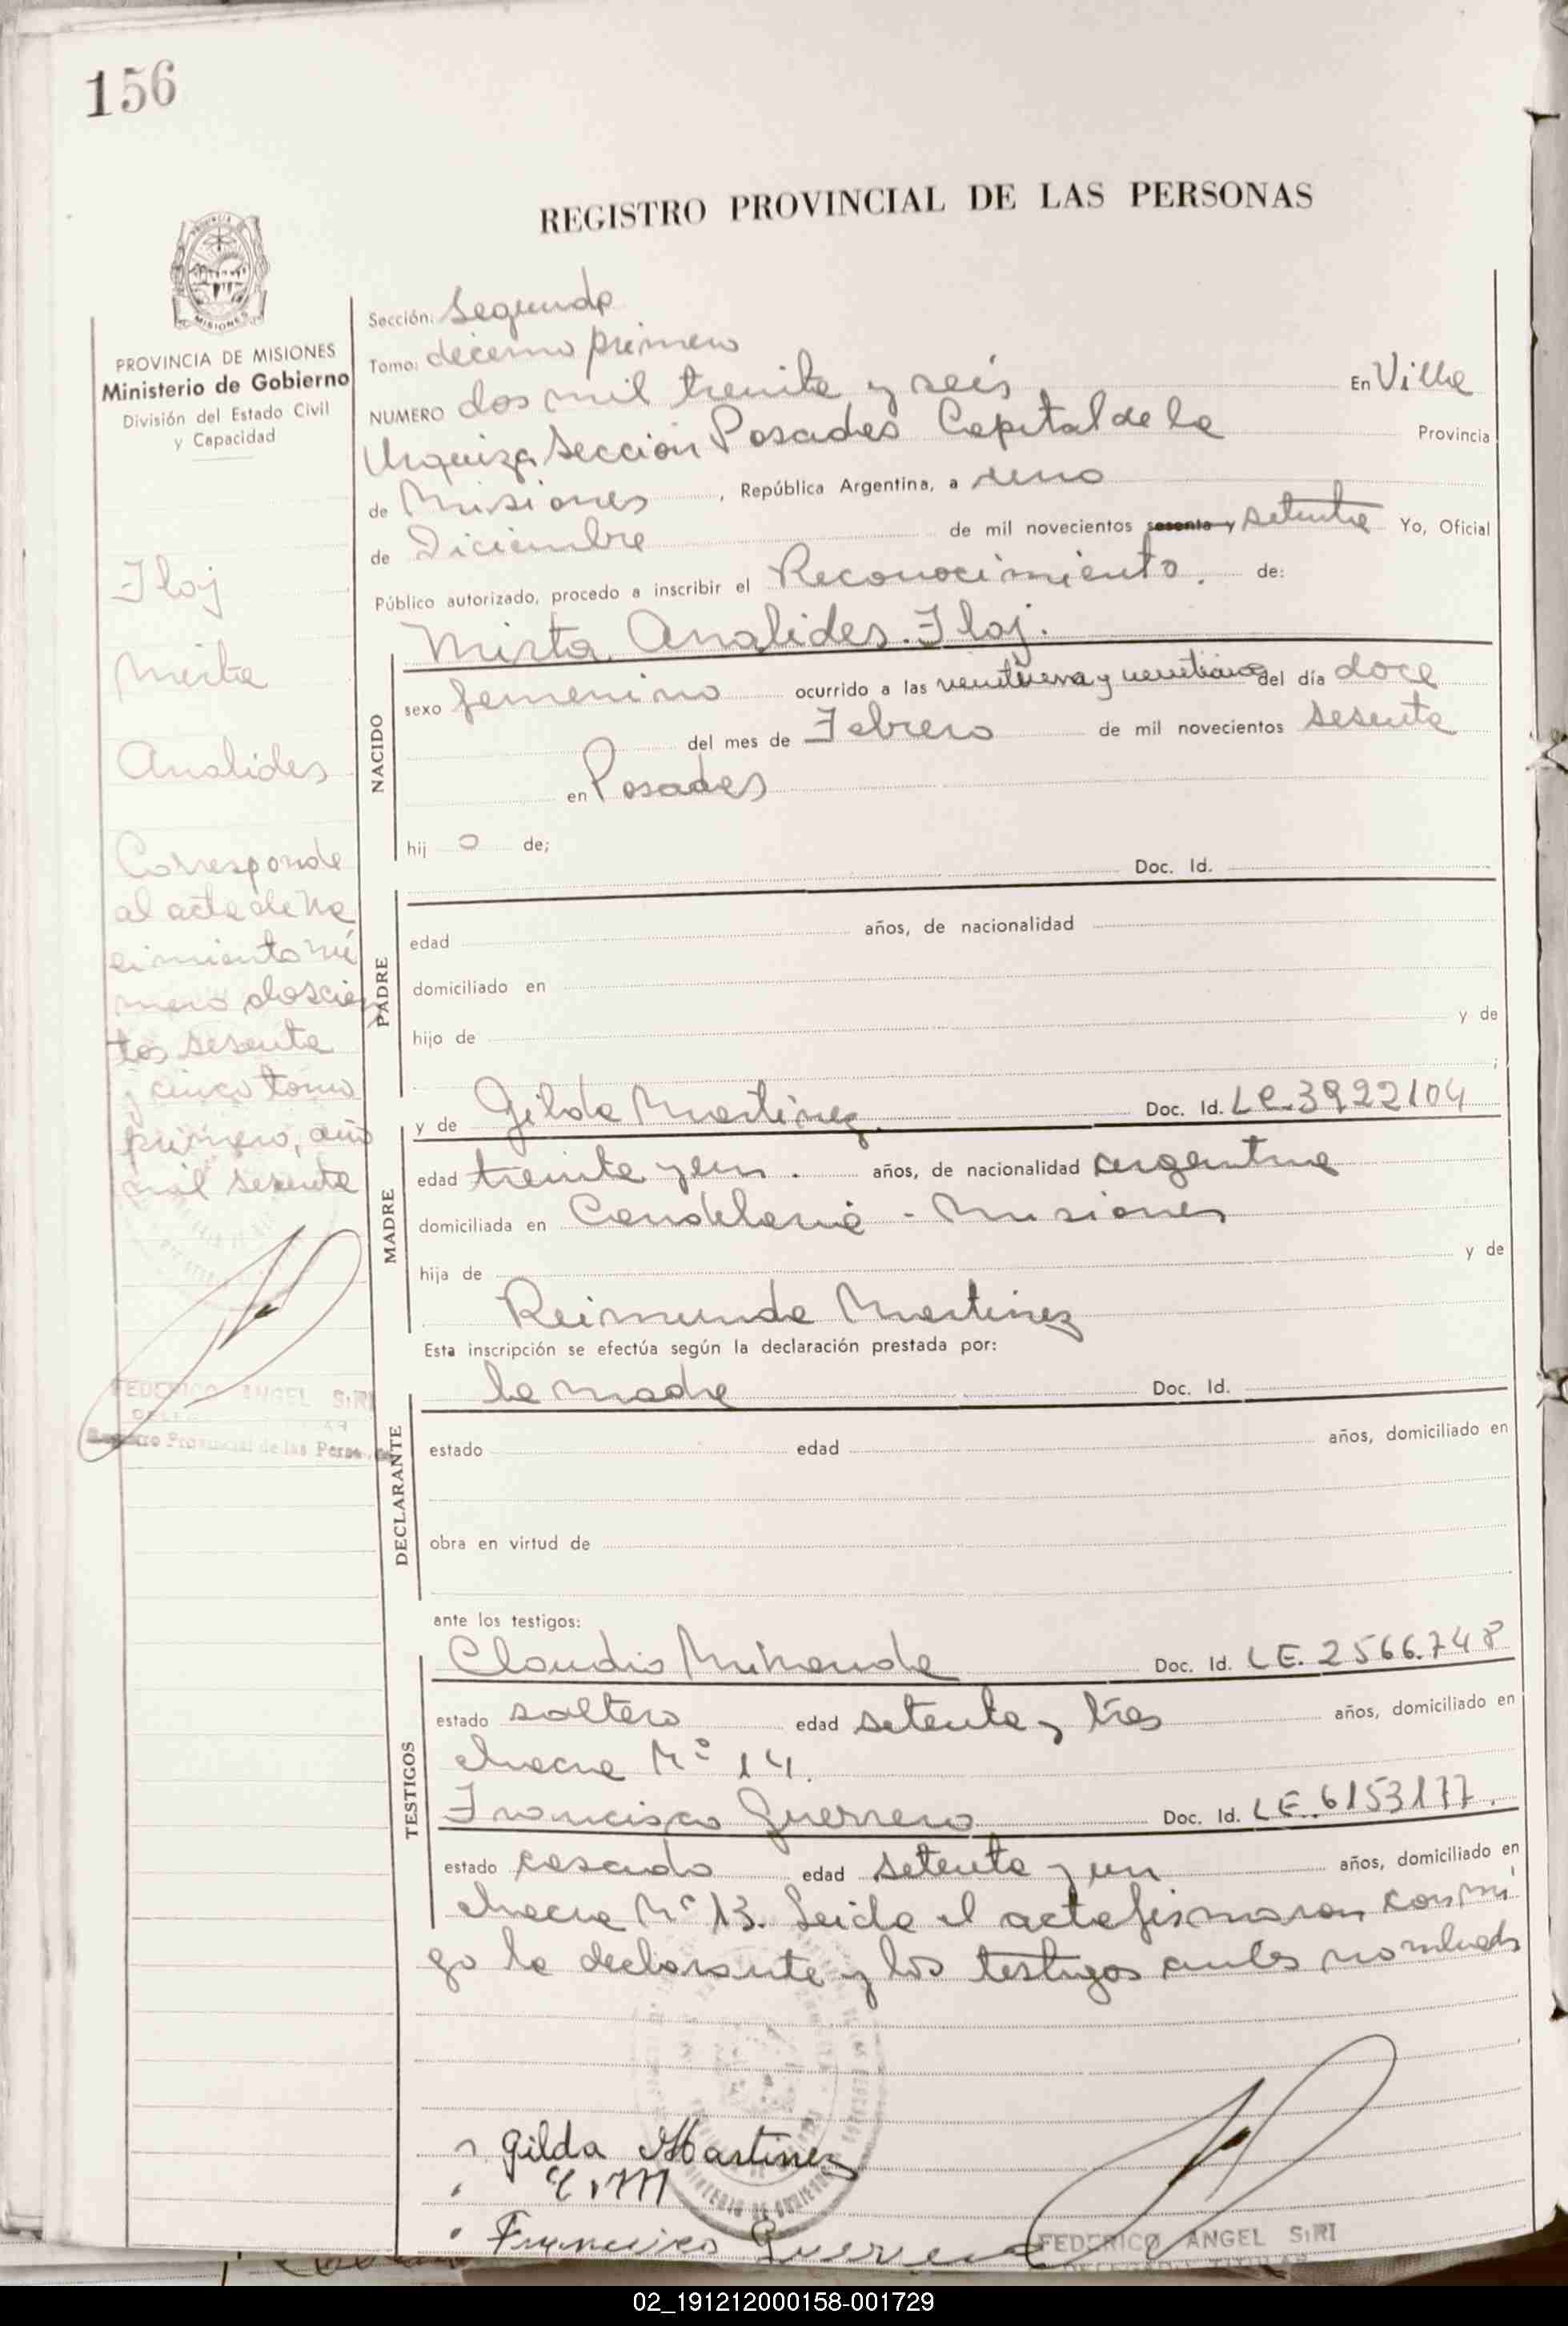 156
REGISTRO PROVINCIAL DE LAS PERSONAS
MISIONES
PROVINCIA DE MISIONES
Ministerio de Gobierno
División del Estado Civil
y Capacidad
Floj
Mirta
Analides
Corresponde
al acta de Na
cimiento nú
mero doscien
tos sesenta
y cinco tomo
primero, año
mil sesenta
FEDERICO ANGEL SIRI
Registro Provincial de las Personas
Sección: Segunda
Tomo: decimo primero
NUMERO dos mil treinta y seis En Villa
Urquiza Sección Posadas Capital de la Provincia
de Misiones, República Argentina, a uno
de Diciembre de mil novecientos sesenta y setenta Yo, Oficial
Público autorizado, procedo a inscribir el Reconocimiento. de:
Mirta Analides. Floj.
NACIDO
sexo femenino ocurrido a las del día doce
del mes de Febrero de mil novecientos sesenta
en Posadas
hij a de;
Doc. Id.
PADRE
edad años, de nacionalidad
domiciliado en
hijo de y de
;
y de Gilda Martinez. Doc. Id. LC. 3922104
MADRE
edad treinta y un. años, de nacionalidad argentina
domiciliada en Candelaria - Misiones
hija de y de
Reimunda Martinez
Esta inscripción se efectúa según la declaración prestada por:
la madre Doc. Id.
DECLARANTE
estado edad años, domiciliado en
obra en virtud de
ante los testigos:
Claudio Miranda Doc. Id. LE. 2566.748
TESTIGOS
estado soltero edad setenta y tres años, domiciliado en
chacra Nº 14.
Francisco Guerrero Doc. Id. LE. 6153177.
estado casado edad setenta y un años, domiciliado en
chacra Nº 13. Leida el acta firmaron conmi
go la declarante y los testigos antes nombrads
Gilda Martinez
Francisco Guerrero
FEDERICO ANGEL SIRI
DELEGADO TITULAR
02_191212000158-001729